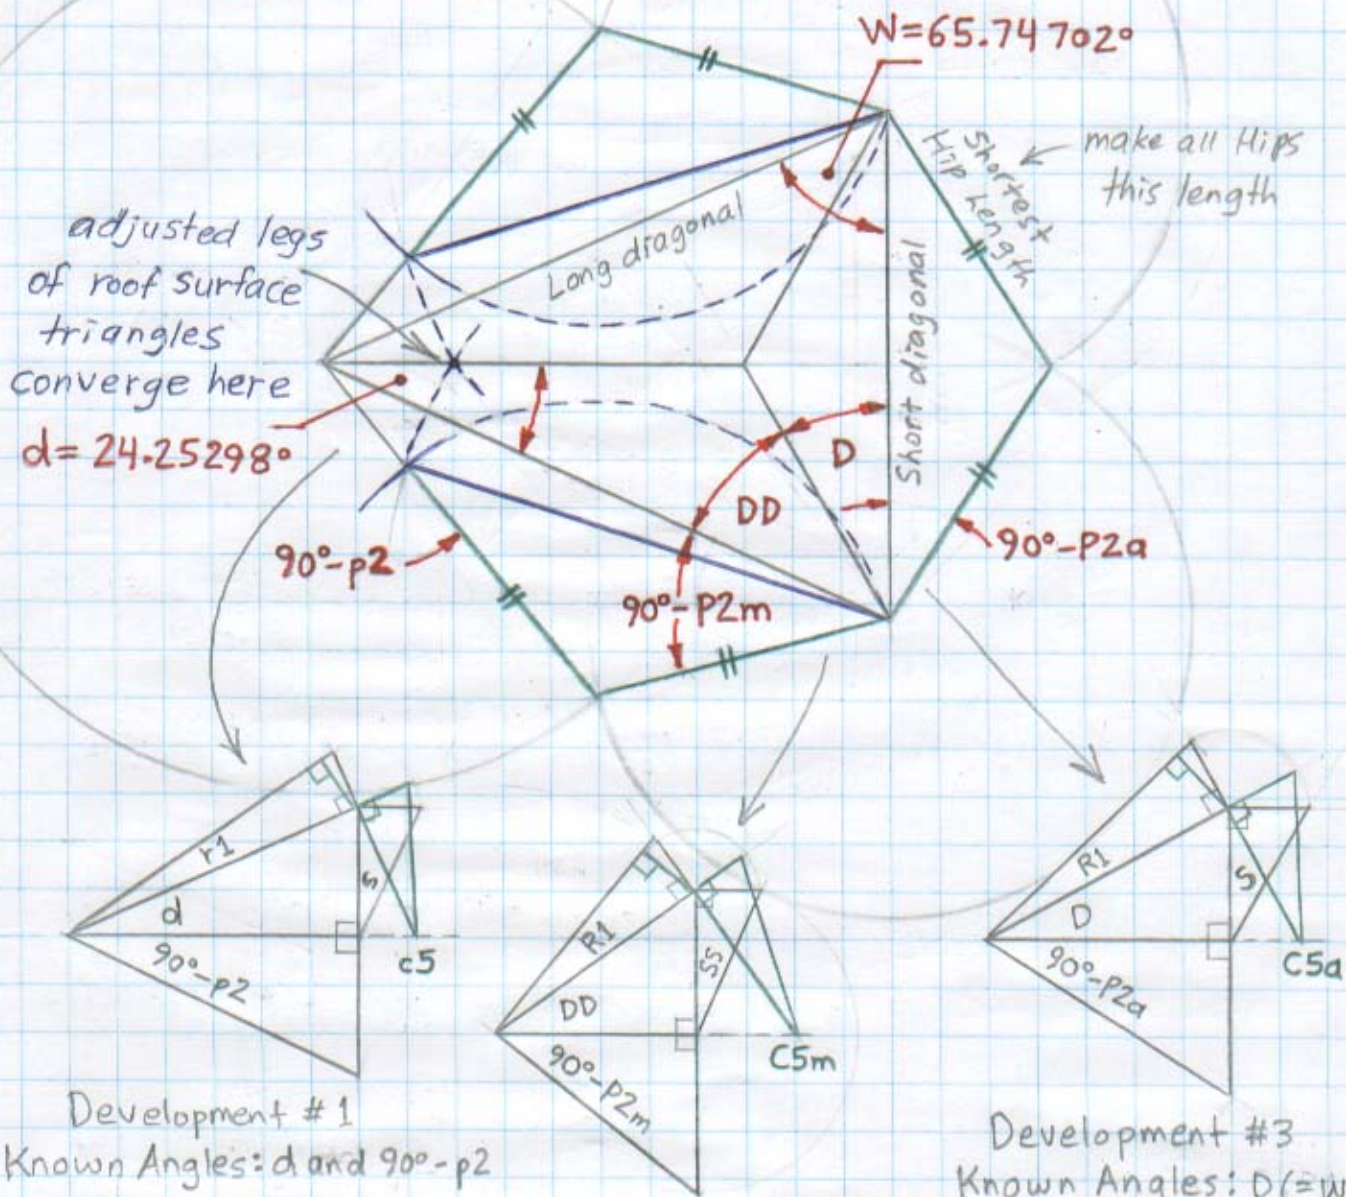 W=65.74702°
Shortest
Hip Length
make all Hips
this length
adjusted legs
of roof surface
triangles
converge here
Long diagonal
Short diagonal
d= 24.25298°
D
DD
90°-p2
90°-P2m
90°-P2a
r1
d
s
90°-p2
c5
R1
DD
SS
90°-P2m
C5m
R1
D
S
90°-P2a
C5a
Development # 1
Known Angles: d and 90°-p2
Development #3
Known Angles: D(=W